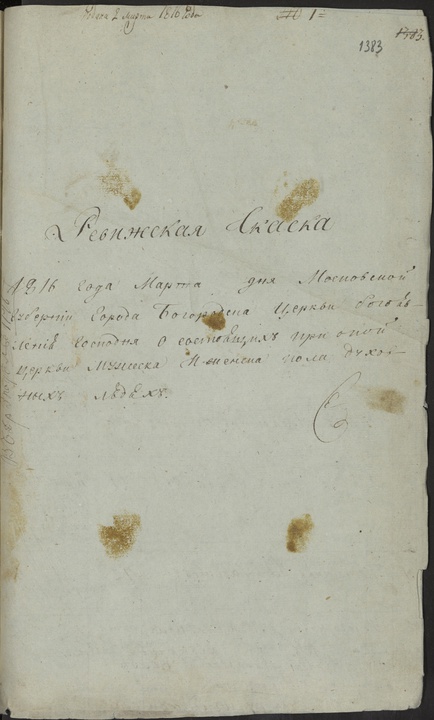 марта 1816 года
1383
1383.
Ревижская Скаска
1816 года Марта дня Московской
Губернїи города Богородска Церкви богояв-
ленїя Господня о состоящихъ при оной
церкви Мужеска и женска пола духо-
ныхъ людѣхъ.